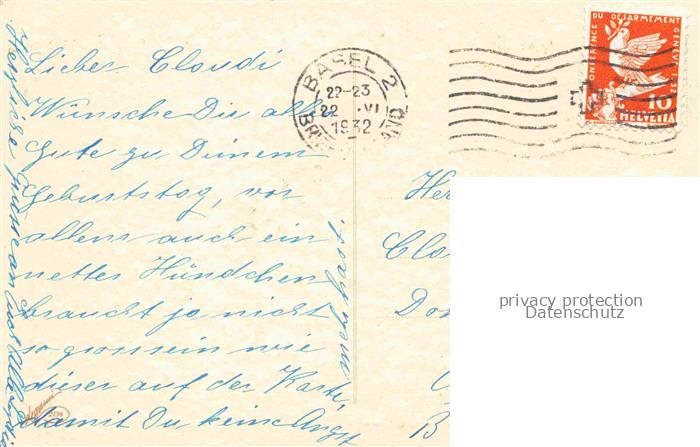 Lieber Claudi
Wünsche Dir alles
Gute zu Deinem
Geburtstag, vor
allem auch ein
nettes Hündchen
braucht ja nicht
so gross sein wie
dieser auf der Karte,
damit Du keine Angst
haben musst.
Herzliche Grüsse an
BASEL 2
22-23
22. VI
1932
CONFERENCE DU DESARMEMENT GENEVE 1932
10
HELVETIA
Her
Clau
Do
B
privacy protection
Datenschutz